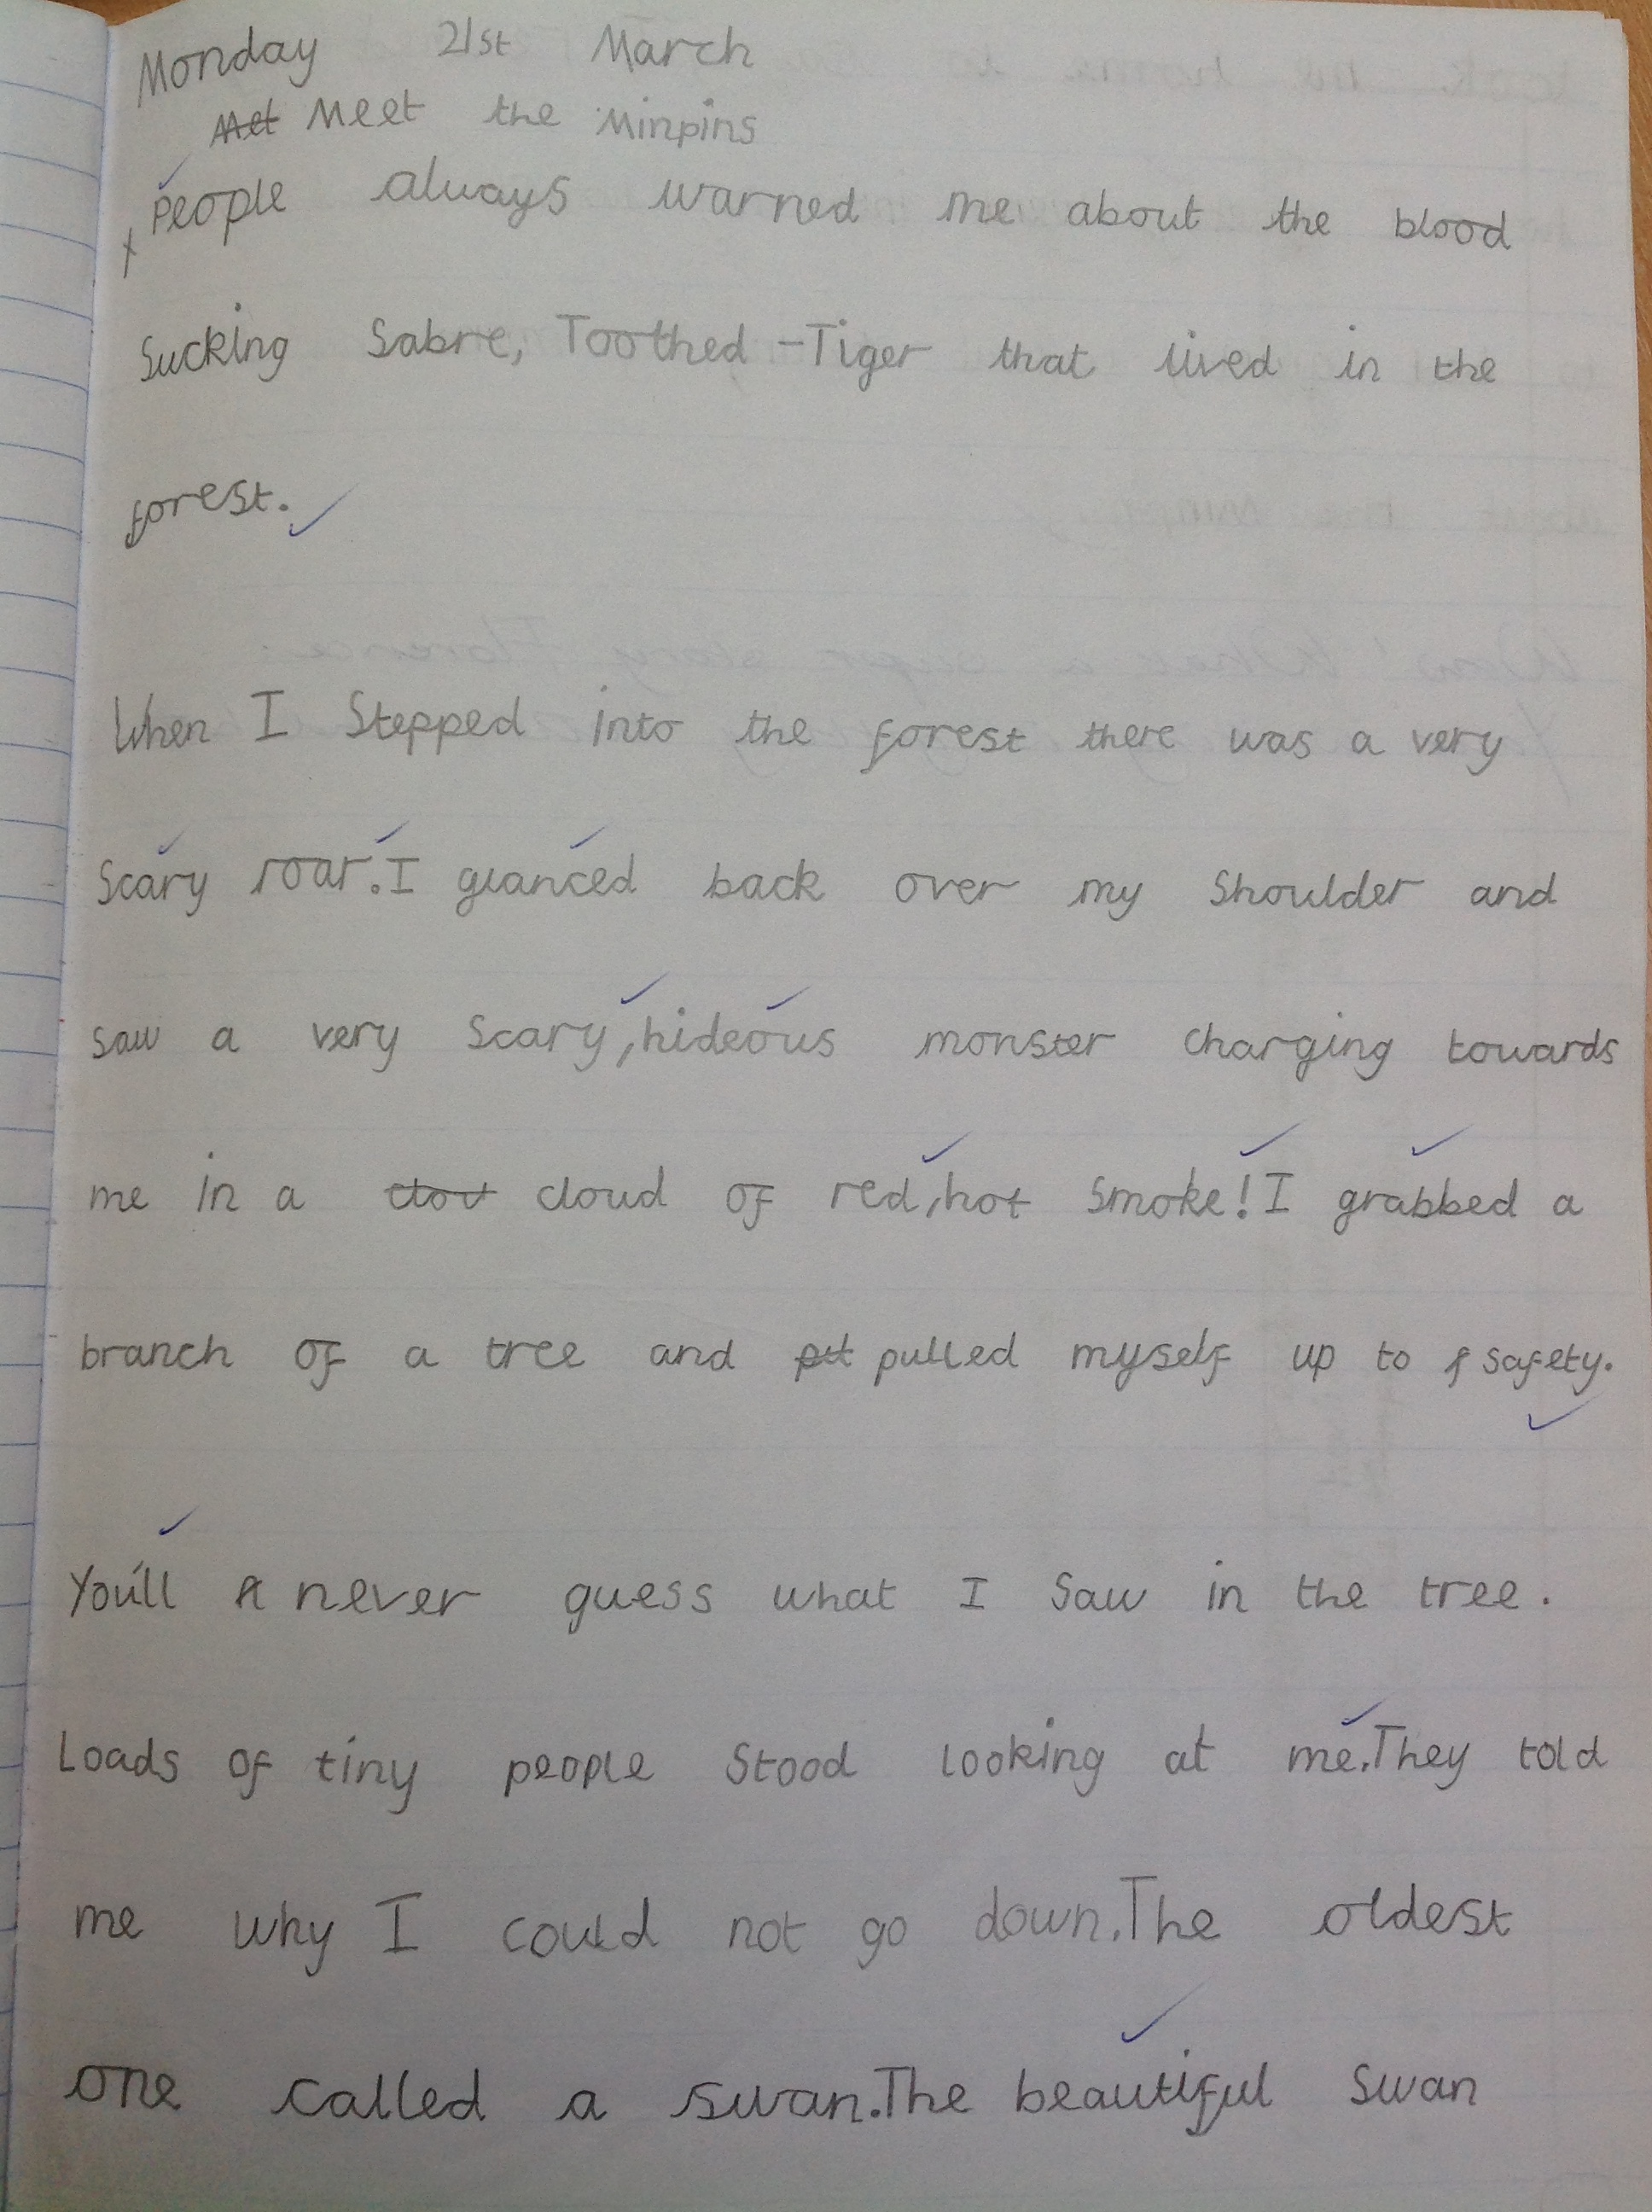 Monday 21st March
Met Meet the Minpins
People always warned me about the blood
Sucking Sabre, Toothed -Tiger that lived in the
forest.
When I Stepped into the forest there was a very
Scary roar. I glanced back over my Shoulder and
saw a very Scary, hideous monster charging towards
me in a clou cloud of red, hot Smoke! I grabbed a
branch of a tree and put pulled myself up to f safety.
You'll n never guess what I Saw in the tree.
Loads of tiny people Stood looking at me. They told
me why I could not go down. The oldest
one called a swan. The beautiful swan